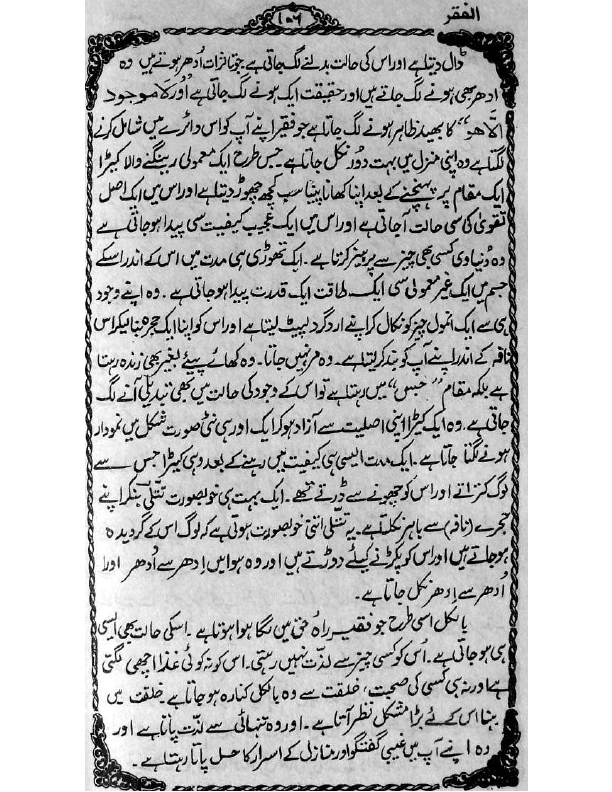 الفقر
۱۵۶
ڈال دیتا ہے اور اس کی حالت بدلنے لگ جاتی ہے جو تاثرات اُدھر ہوتے ہیں وہ
ادھر بھی ہونے لگ جاتے ہیں اور حقیقت ایک ہونے لگ جاتی ہے اور لَا موجود
الّا ھو" کا بھید ظاہر ہونے لگ جاتا ہے جو فقیر اپنے آپ کو اس دائرے میں شامل کرنے
لگتا ہے وہ اپنی منزل میں بہت دُور نکل جاتا ہے جس طرح ایک معمولی رینگنے والا کیڑا
ایک مقام پر پہنچنے کے بعد اپنا کھانا پینا سب کچھ چھوڑ دیتا ہے اور اس میں ایک اصل
تقویٰ کی سی حالت آجاتی ہے اور اس میں ایک عجیب کیفیت سی پیدا ہو جاتی ہے
وہ دُنیاوی کسی بھی چیز سے پرہیز کرتا ہے۔ ایک تھوڑی ہی مدت میں اس کے اندر اسکے
جسم میں ایک غیر معمولی سی ایک طاقت ایک قدرت پیدا ہو جاتی ہے۔ وہ اپنے وجود
ہی سے ایک انمول چیز کو نکال کر اپنے ارد گرد لپیٹ لیتا ہے اور اس کو اپنا ایک حجرہ بنا لیکر اس
نافہ کے اندر اپنے آپ کو بند کر لیتا ہے۔ وہ مر نہیں جاتا۔ وہ کھائے پیئے بغیر بھی زندہ رہتا
ہے بلکہ مقام "حبس" میں رہتا ہے تو اس کے وجود کی حالت میں بھی تبدیلی آنے لگ
جاتی ہے۔ وہ ایک کیڑا اپنی اصلیت سے آزاد ہو کر ایک اور ہی نئی صورت شکل میں نمودار
ہونے لگتا جاتا ہے۔ ایک مدت ایسی ہی کیفیت میں رہنے کے بعد وہی کیڑا جس سے
لوگ کتراتے اور اس کو چھونے سے ڈرتے تھے۔ ایک بہت ہی خوبصورت تتلی بنکر اپنے
حجرے (نافہ) سے باہر نکلتا ہے۔ یہ تتلی اتنی خوبصورت ہوتی ہے کہ لوگ اس کے گرویدہ
ہو جاتے ہیں اور اس کو پکڑنے کیلئے دوڑتے ہیں اور وہ ہوا میں اِدھر سے اُدھر اور
اُدھر سے اِدھر نکل جاتا ہے۔
بالکل اسی طرح جو فقیر راہِ حق میں لگا ہوا ہوتا ہے۔ اسکی حالت بھی ایسی
ہی ہو جاتی ہے۔ اُس کو کسی چیز سے لذت نہیں رہتی۔ اس کو نہ کوئی غذا اچھی لگتی
ہے اور نہ ہی کسی کی صحبت، خلقت سے وہ بالکل کنارہ ہو جاتا ہے۔ خلقت میں
رہنا اس کے لئے بڑا مشکل نظر آتا ہے۔ اور وہ تنہائی سے لذّت پاتا ہے اور
وہ اپنے آپ میں غیبی گفتگو اور منازل کے اسرار کا حل پاتا رہتا ہے۔